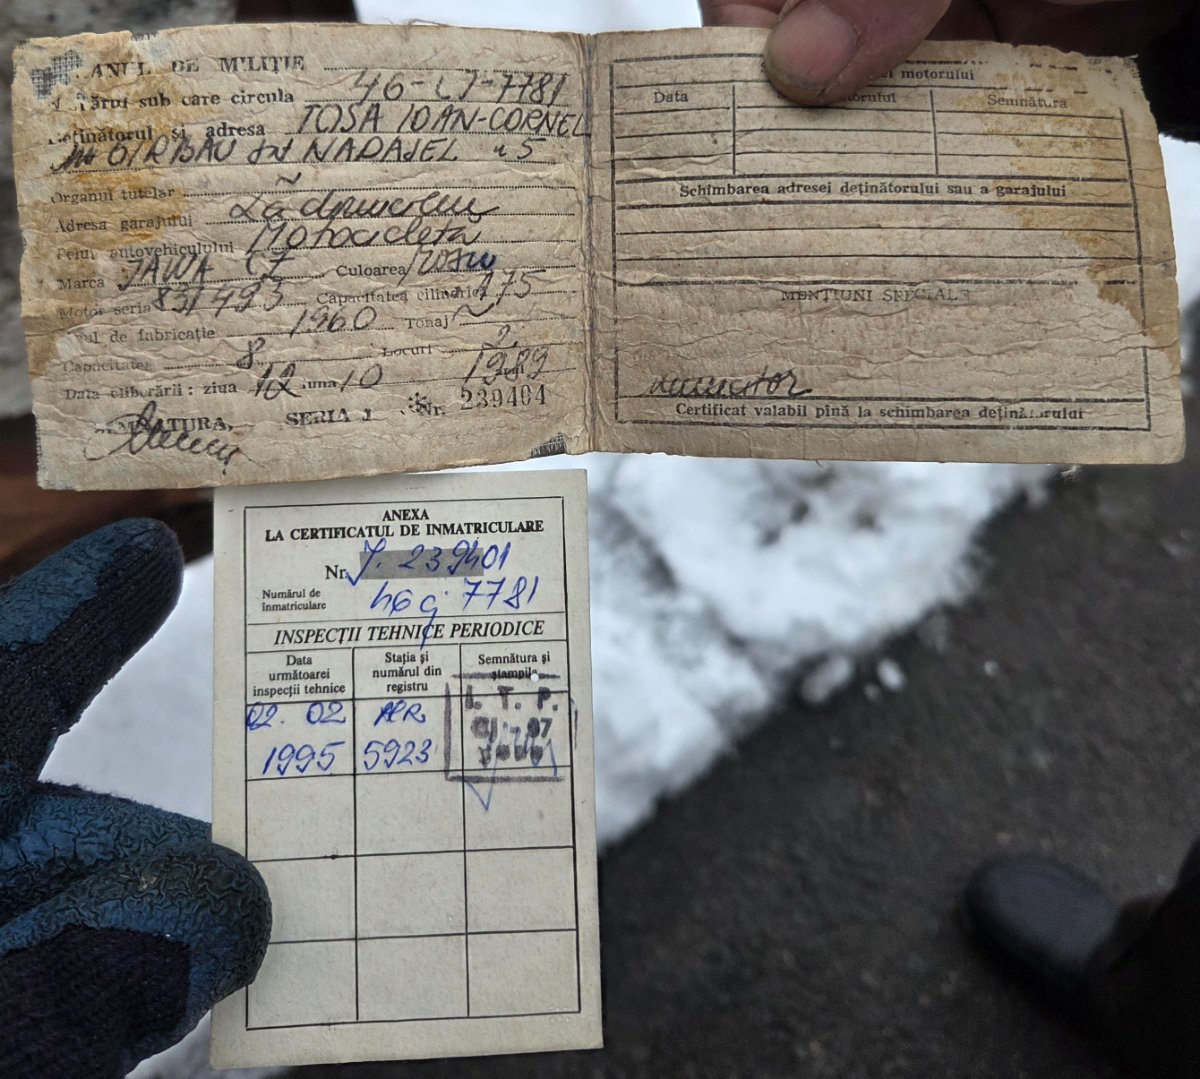 ANUL DE MILIȚIE
sub care circula 46-CJ-7781
și adresa TOSA IOAN-CORNEL
NADAȘEL 5
Organul tutelar ~
Adresa garajului La domiciliu
Felul autovehiculului Motocicleta
Marca JAWA CZ Culoarea roșu
Motor seria 831493 Capacitatea cilindrică 175
de fabricație 1960 Tonaj ~
Capacitatea 8 Locuri 2
Data eliberării: ziua 12 luna 10 1989
SEMNĂTURA, SERIA J Nr. 239404
motorului
Data Semnătura
Schimbarea adresei deținătorului sau a garajului
MENȚIUNI SPECIALE
muncitor
Certificat valabil pînă la schimbarea deținătorului
ANEXA
LA CERTIFICATUL DE INMATRICULARE
Nr. J. 239401
Numărul de
înmatriculare 46 cj 7781
INSPECȚII TEHNICE PERIODICE
Data
următoarei
inspecții tehnice
Stația și
numărul din
registru
Semnătura și
ștampila
02. 02
1995
5923
I. T. P.